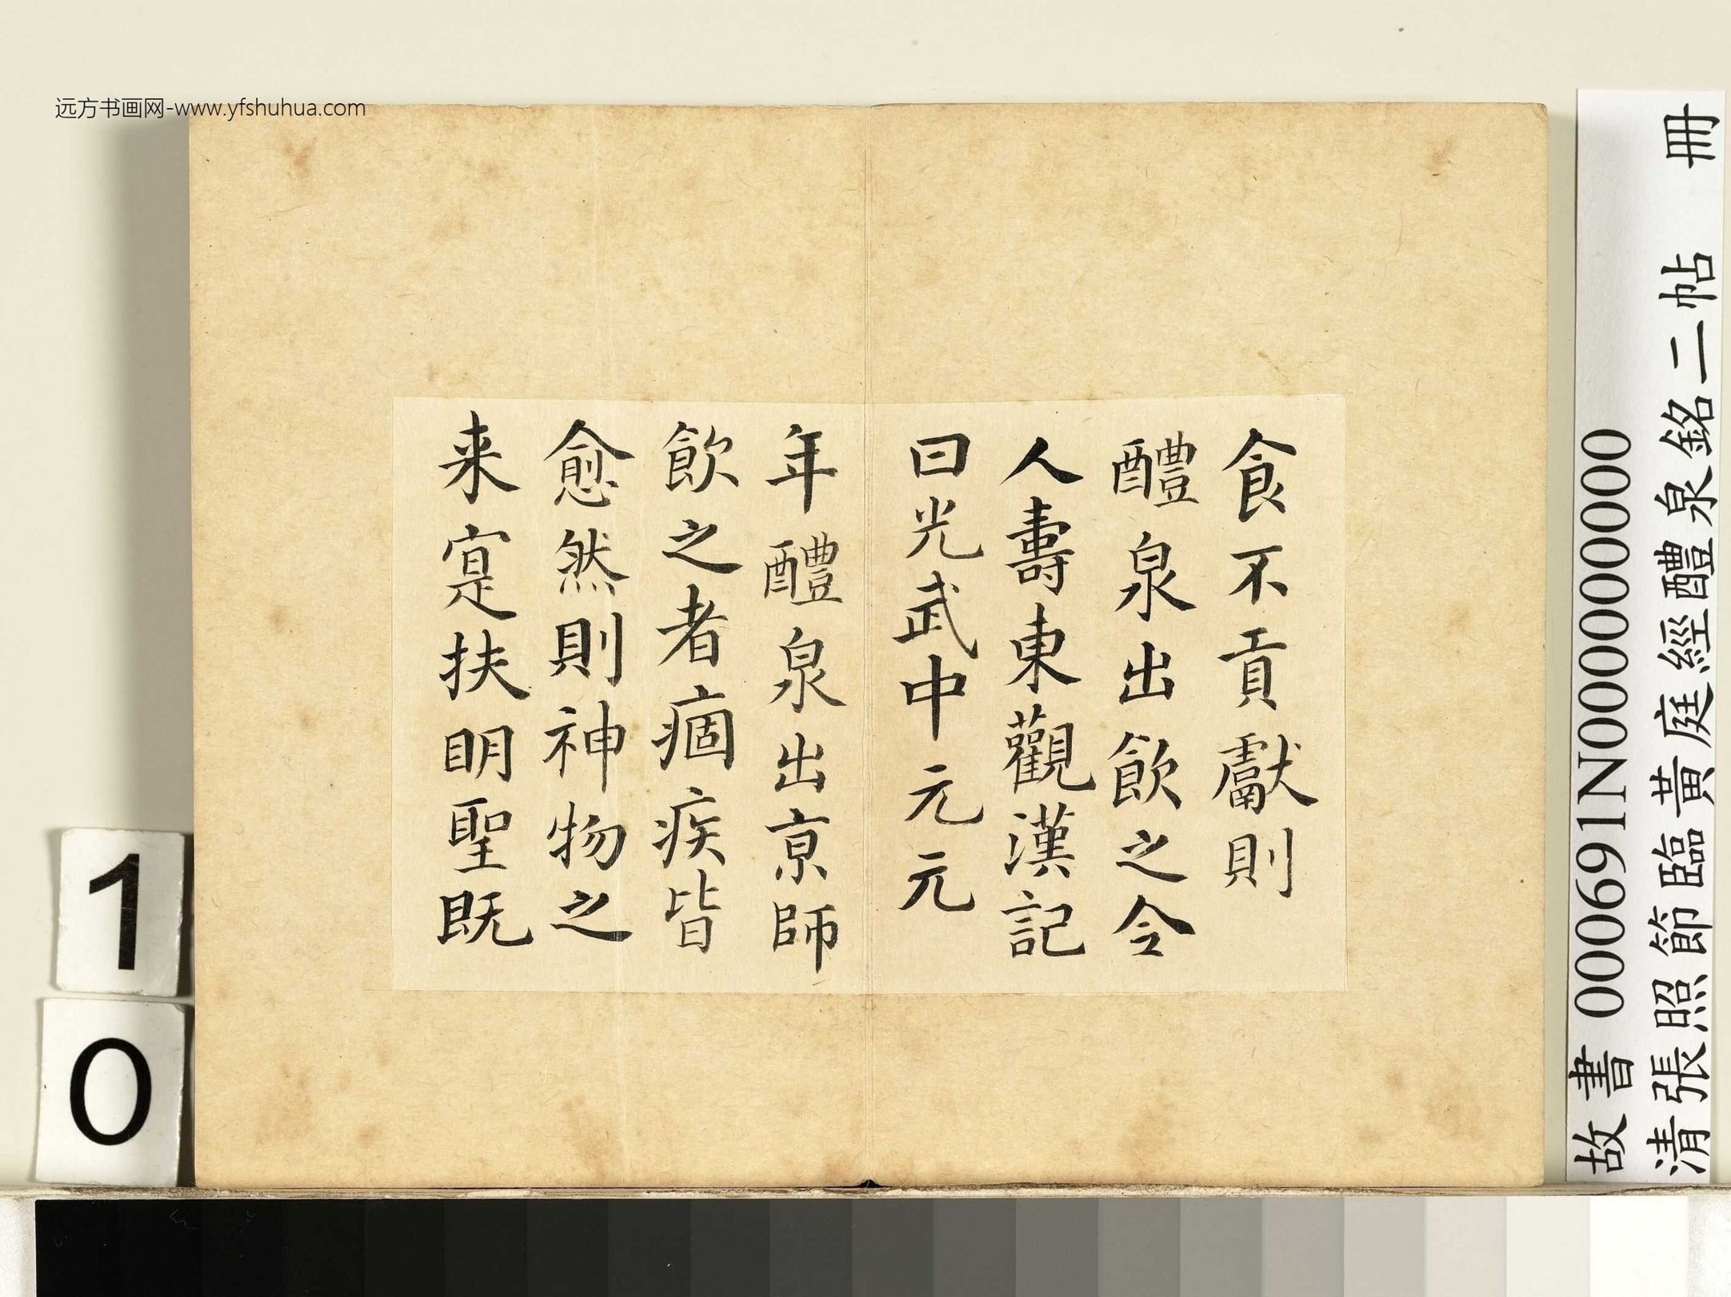 远方书画网-www.yfshuhua.com
食不貢獻則
醴泉出飲之令
人壽東觀漢記
曰光武中元元
年醴泉出京師
飲之者痼疾皆
愈然則神物之
来寔扶明聖既
故書 000691N000000000
清張照節臨黃庭經醴泉銘二帖 冊
1
0